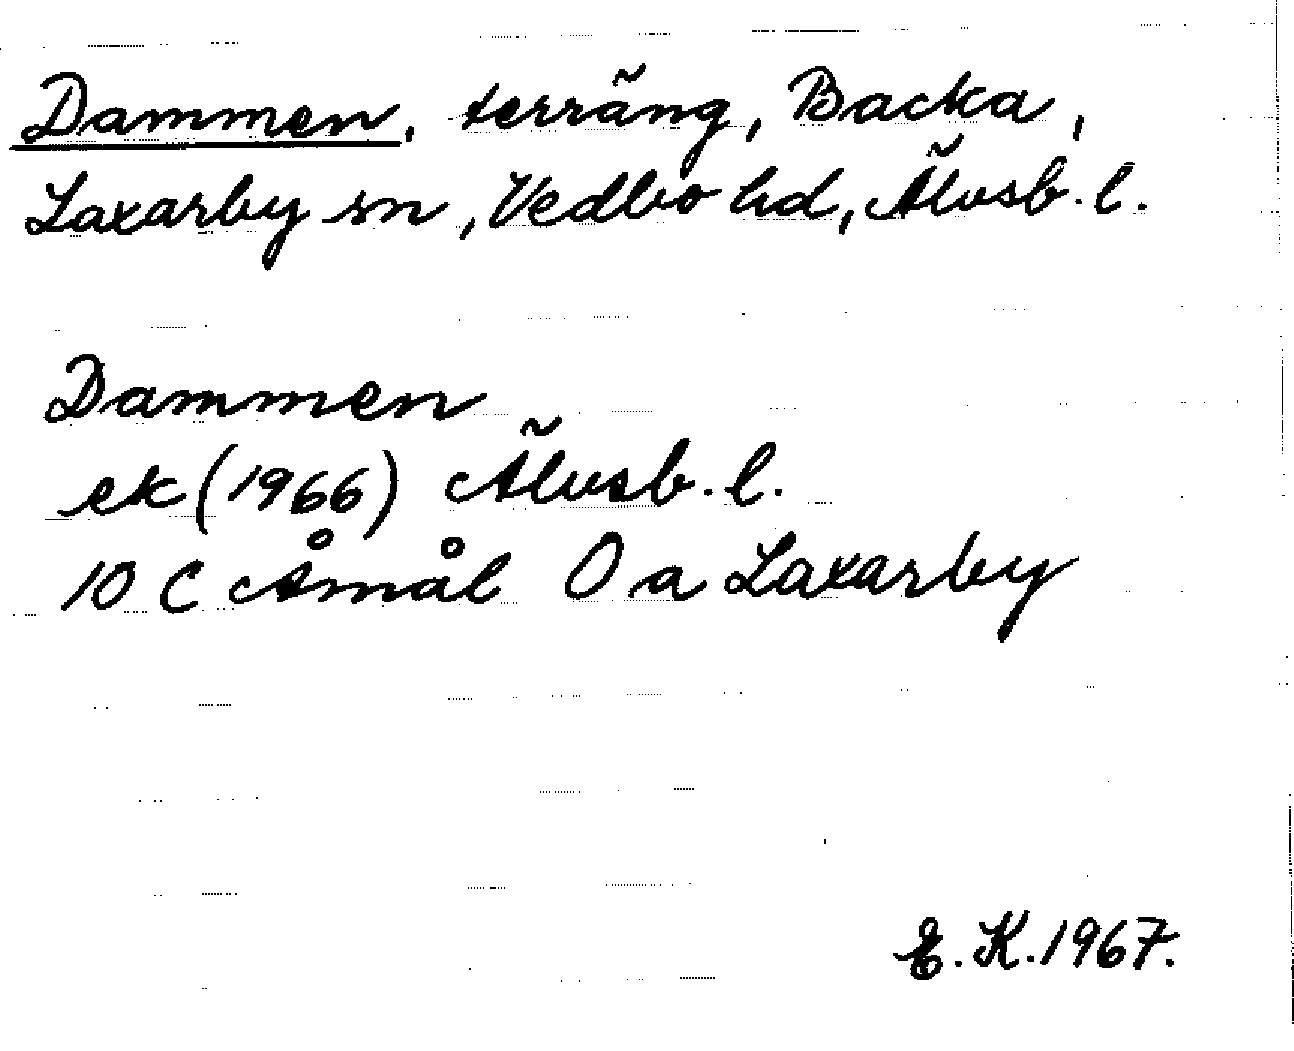 Dammen, terräng, Backa,
Laxarby sn, Vedbo hd, Älvsb. l.
Dammen
ek (1966) Älvsb. l.
10 C Åmål O a Laxarby
E. K. 1967.